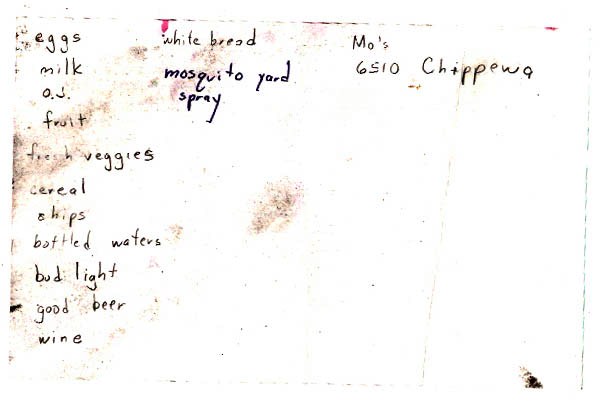 eggs
milk
O.J.
fruit
fresh veggies
cereal
chips
bottled waters
bud light
good beer
wine
white bread
mosquito yard
spray
Mo's
6510 Chippewa